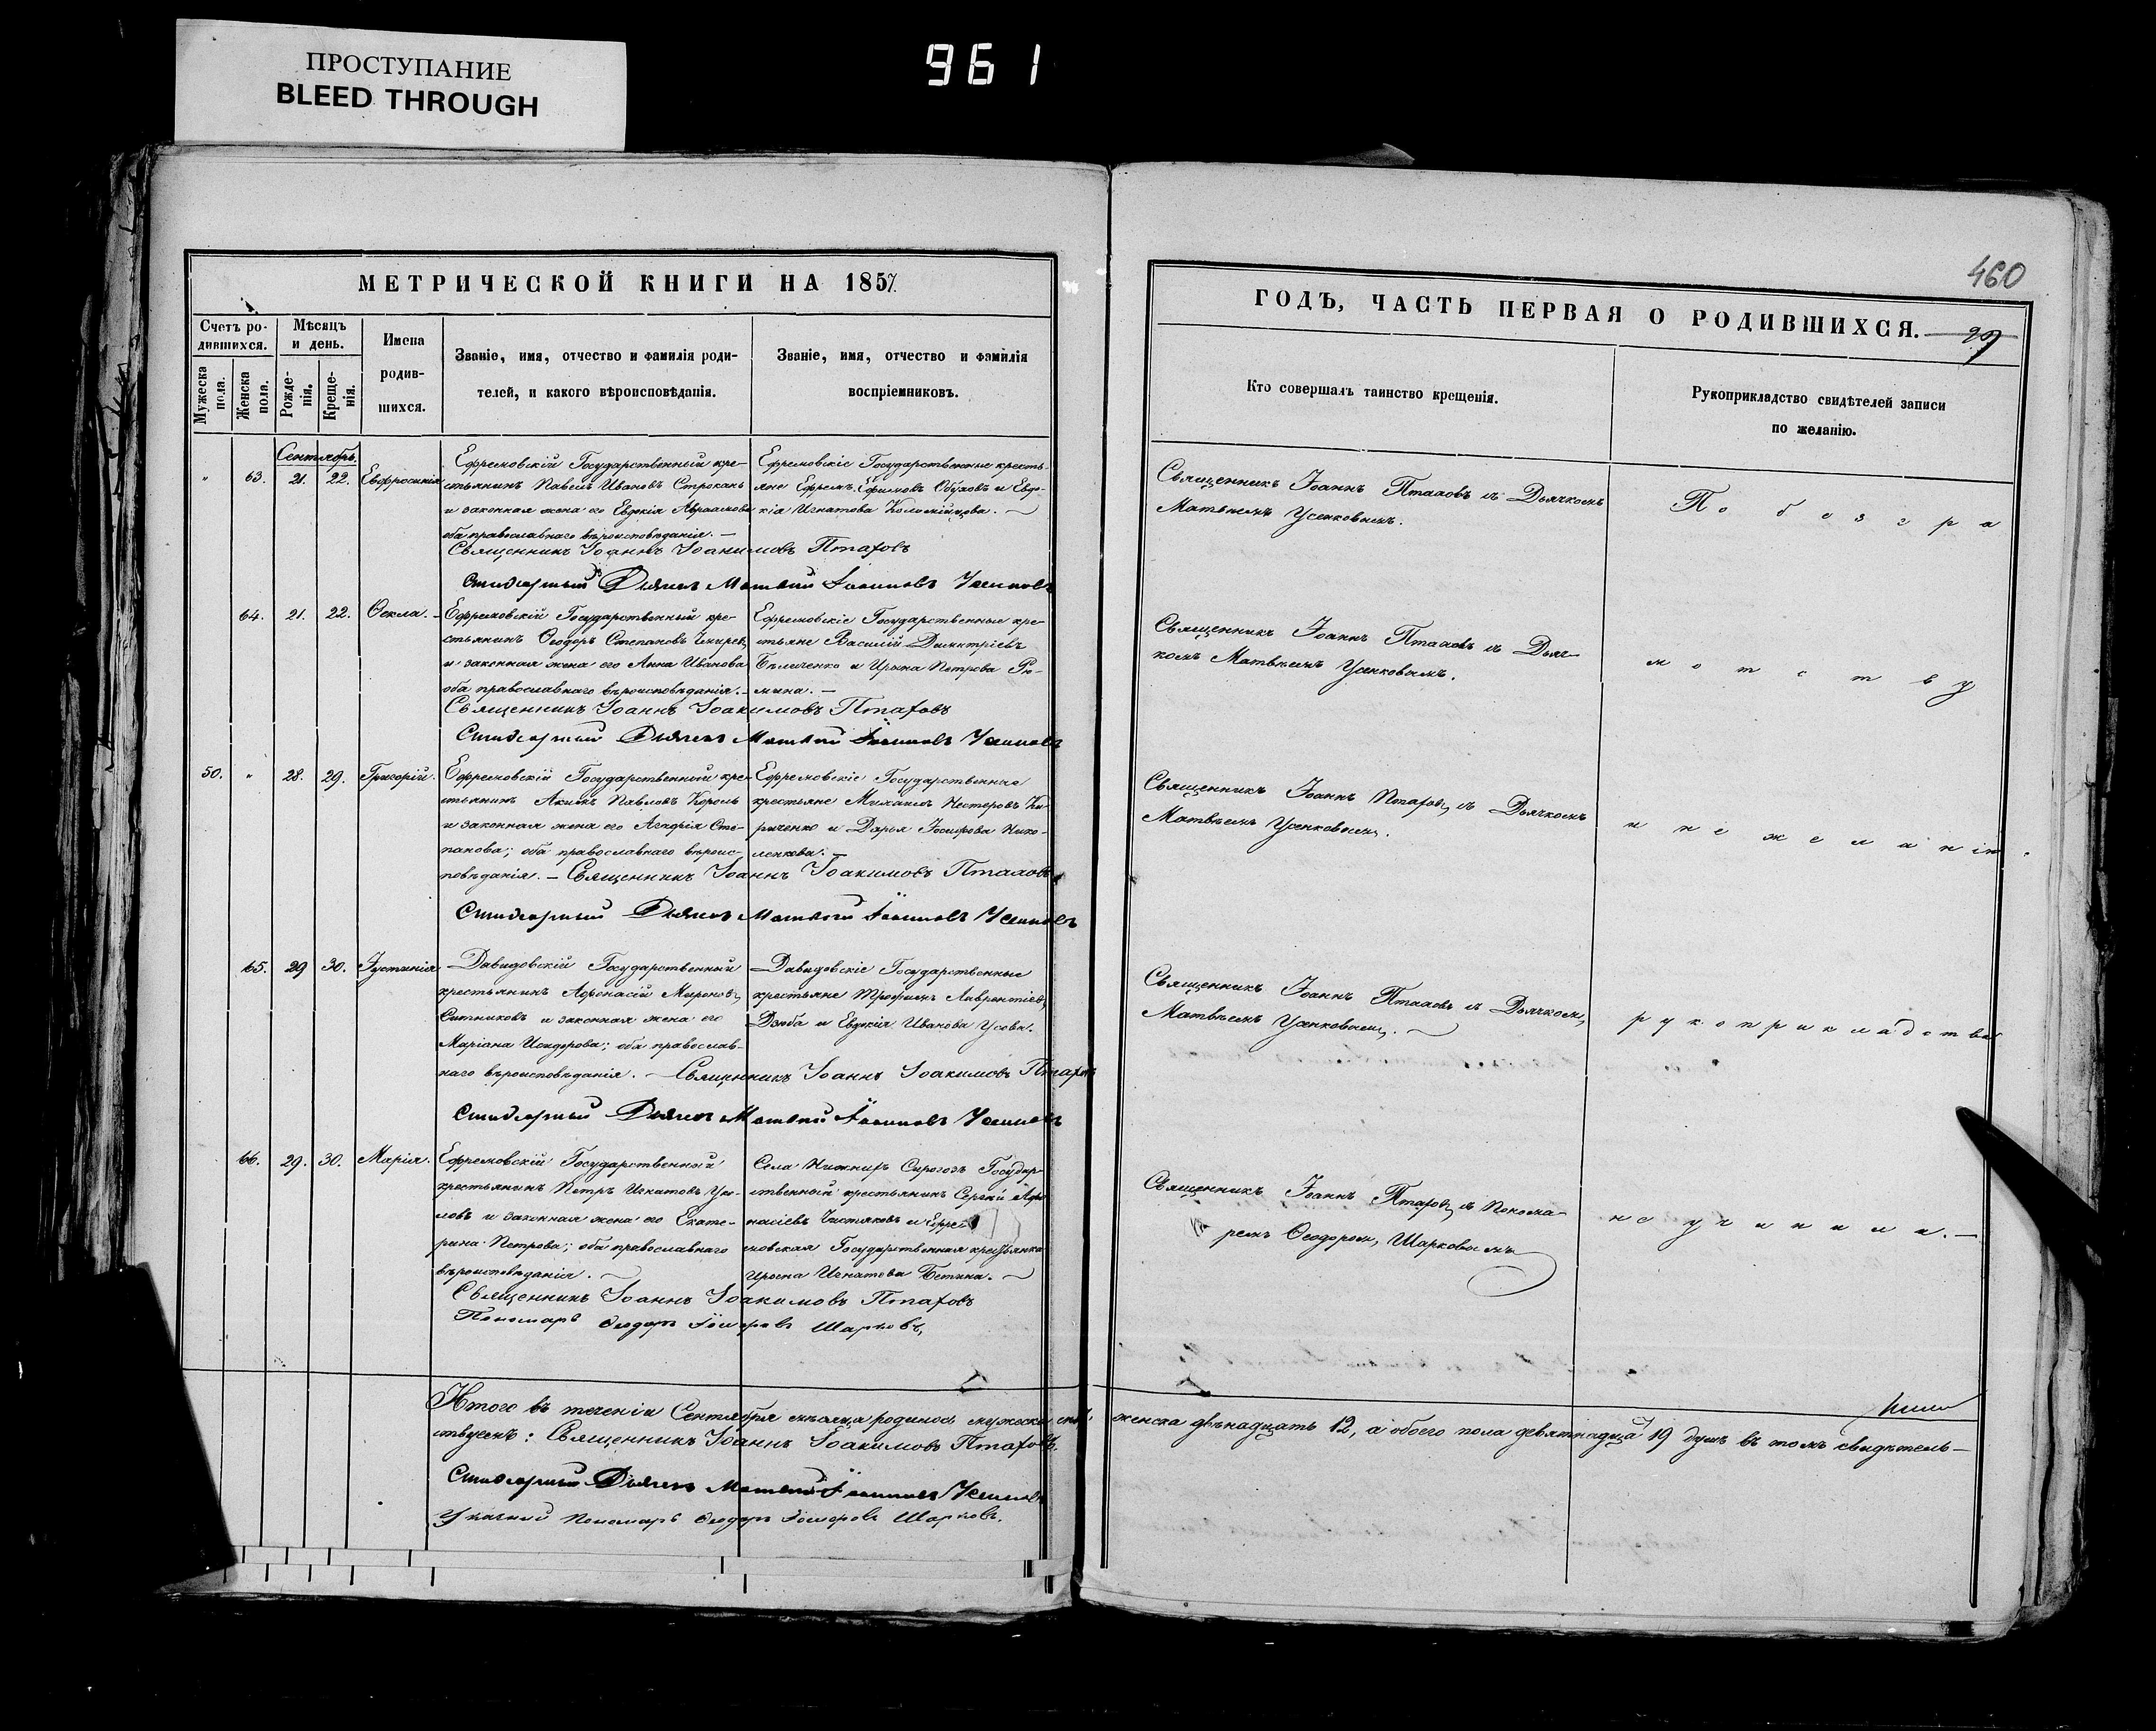 ПРОСТУПАНИЕ
BLEED THROUGH
961
460
МЕТРИЧЕСКОЙ КНИГИ НА 1857
ГОДЪ, ЧАСТЬ ПЕРВАЯ О РОДИВШИХСЯ.
Счетъ родившихся.
Мѣсяцъ и день.
Имена родившихся.
Званіе, имя, отчество и фамилія родителей, и какого вѣроисповѣданія.
Званіе, имя, отчество и фамилія воспріемниковъ.
Кто совершалъ таинство крещенія.
Рукоприкладство свидѣтелей записи по желанію.
Мужеска пола.
Женска пола.
Рожденія.
Крещенія.
Сентябрь.
" 63. 21. 22. Евфросинія
Ефремовскій Государственный кре-
стьянинъ Павелъ Ивановъ Строкань
и законная жена его Евдокія Авраамова
оба православнаго вѣроисповѣданія. —
Священникъ Іоаннъ Іоакимовъ Птаховъ
Ефремовскіе Государственные кресть-
яне Ефремъ Ефимовъ Обуховъ и Евдо-
кія Игнатова Коломійцова. —
Священникъ Іоаннъ Птаховъ съ Дьячкомъ
Матвѣемъ Усенковымъ.
По безгра
64. 21. 22. Ѳекла. —
Ефремовскій Государственный кре-
стьянинъ Ѳеодоръ Степановъ
и законная жена его Анна Иванова
оба православнаго вѣроисповѣданія. —
Священникъ Іоаннъ Іоакимовъ Птаховъ
Ефремовскіе Государственные кре-
стьяне Василій Димитріевъ
и Ирина Петрова Рю-
мина. —
Священникъ Іоаннъ Птаховъ съ Дьяч-
комъ Матвѣемъ Усенковымъ.
мотству
50. " 28. 29. Григорій.
Ефремовскій Государственный кре-
стьянинъ Акимъ Павловъ Король
и законная жена его Агафія Сте-
панова; оба православнаго вѣроис-
повѣданія. — Священникъ Іоаннъ Іоакимовъ Птаховъ
Ефремовскіе Государственные
крестьяне Михаилъ Нестеровъ Ки-
риченко и Дарья Іосифова Нико-
ленкова. —
Священникъ Іоаннъ Птаховъ съ Дьячкомъ
Матвѣемъ Усенковымъ.
и нежеланію
65. 29 30. Іустинія
Давидовскій Государственный
крестьянинъ Афонасій Мироновъ
Ситниковъ и законная жена его
Маріана Исидорова; оба православ-
наго вѣроисповѣданія. — Священникъ Іоаннъ Іоакимовъ Птаховъ
Давидовскіе Государственные
крестьяне Трофимъ Лаврентіевъ
Дзюба и Евдокія Иванова Усова.
Священникъ Іоаннъ Птаховъ съ Дьячкомъ
Матвѣемъ Усенковымъ. —
рукоприкладства
66. 29. 30. Марія.
Ефремовскій Государственный
крестьянинъ Петръ Игнатовъ
и законная жена его Екате-
рина Петрова; оба православнаго
вѣроисповѣданія. —
Священникъ Іоаннъ Іоакимовъ Птаховъ
Пономарь Ѳеодоръ Шарковъ
Села Нижнихъ Сирогозъ Государ-
ственный крестьянинъ Сергій Афо-
насіевъ Чистяковъ и Ефре-
мовская Государственная крестьянка
Ирина Игнатова
Священникъ Іоаннъ Птаховъ съ Понома-
ремъ Ѳеодоромъ Шарковымъ
не учинили. —
Итого въ теченіи Сентября мѣсяца родилось мужеска
женска двѣнадцать 12, а обоего пола девятнадцать 19 душъ въ томъ свидѣтель-
ствуемъ: Священникъ Іоаннъ Іоакимовъ Птаховъ.
Пономарь Ѳеодоръ Шарковъ.